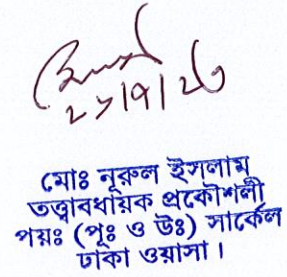 ২১/৭/২৬
মোঃ নূরুল ইসলাম
তত্ত্বাবধায়ক প্রকৌশলী
পয়ঃ (পূঃ ও উঃ) সার্কেল
ঢাকা ওয়াসা।